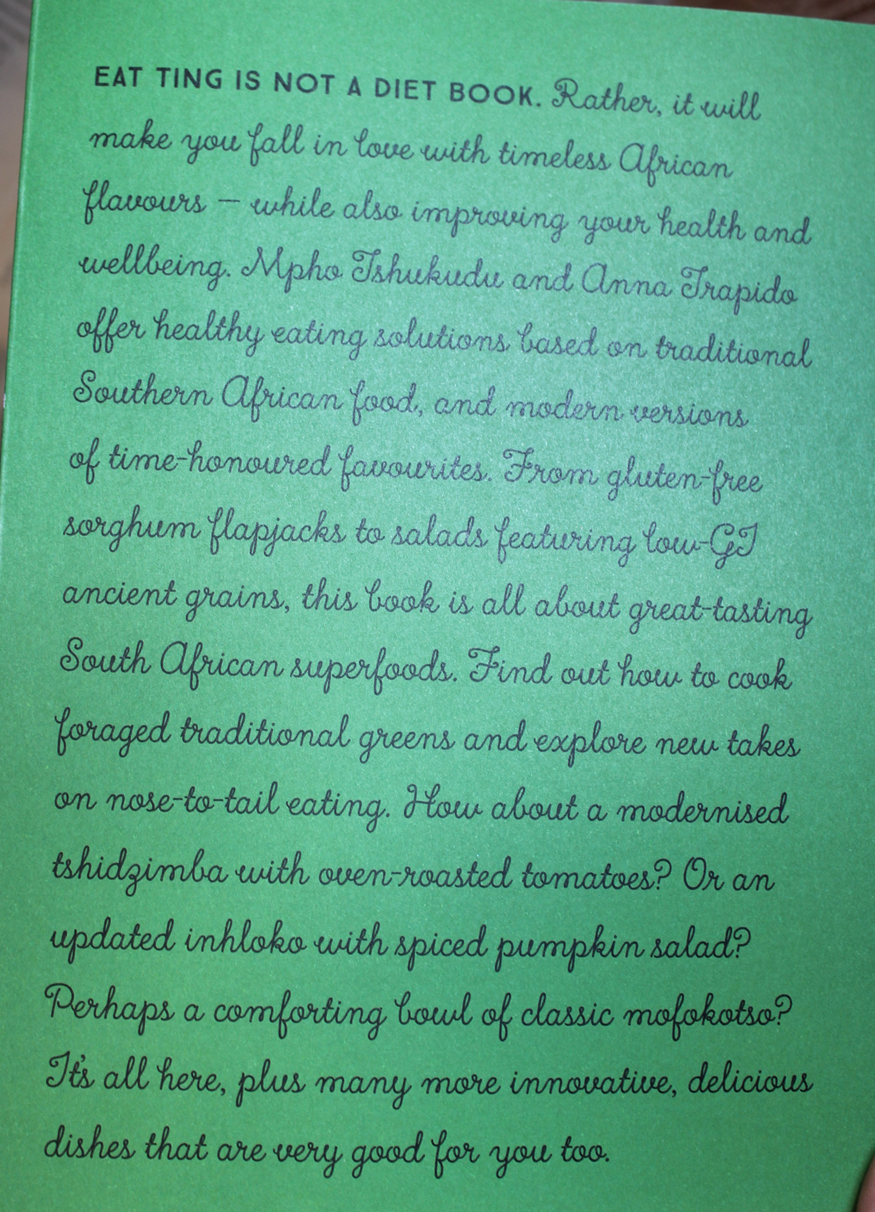 EAT TING IS NOT A DIET BOOK. Rather, it will
make you fall in love with timeless African
flavours – while also improving your health and
wellbeing. Mpho Tshukudu and Anna Trapido
offer healthy eating solutions based on traditional
Southern African food, and modern versions
of time-honoured favourites. From gluten-free
sorghum flapjacks to salads featuring low-GI
ancient grains, this book is all about great-tasting
South African superfoods. Find out how to cook
foraged traditional greens and explore new takes
on nose-to-tail eating. How about a modernised
tshidzimba with oven-roasted tomatoes? Or an
updated inhloko with spiced pumpkin salad?
Perhaps a comforting bowl of classic mofokotso?
It's all here, plus many more innovative, delicious
dishes that are very good for you too.